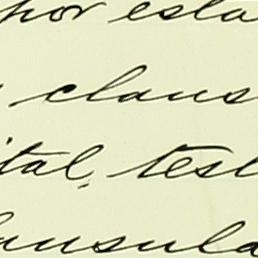 por esta
claus
ital, test
ansula